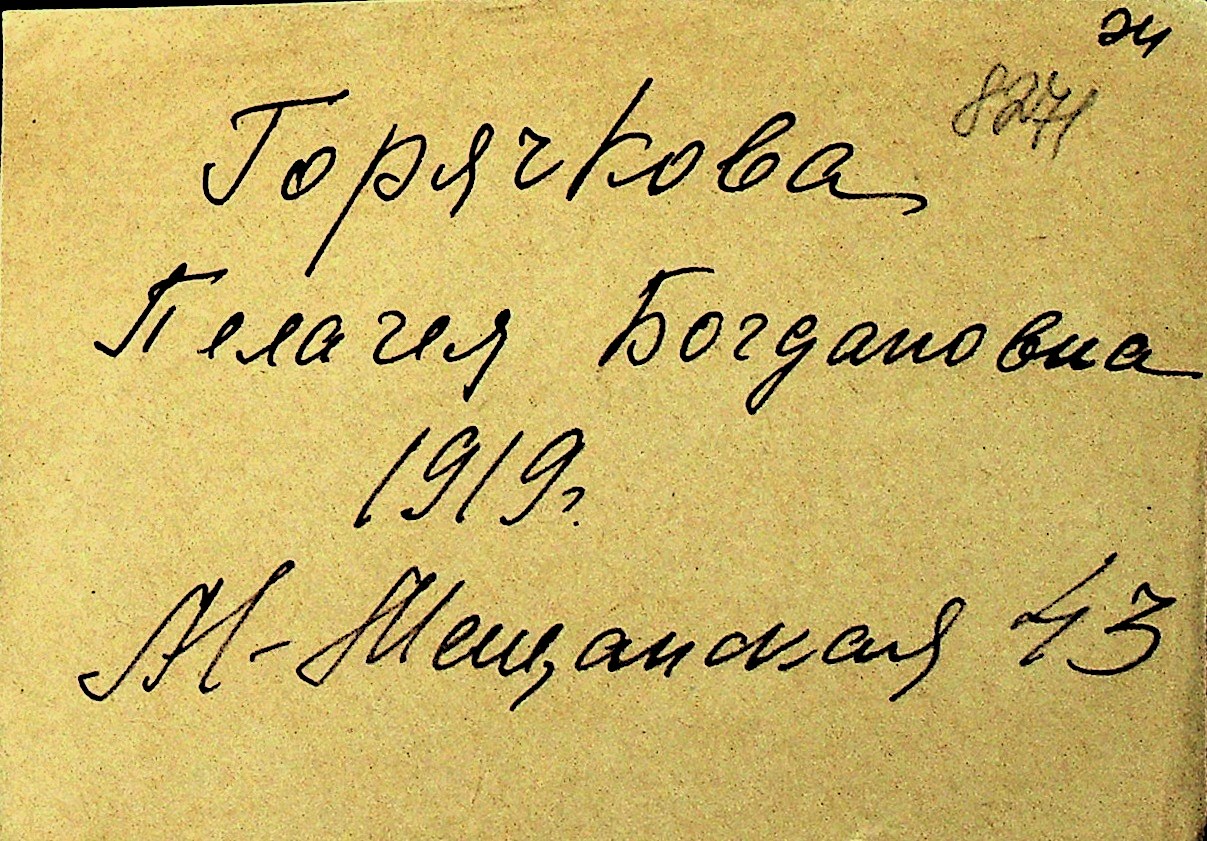 8271
Горячкова
Пелагея Богдановна
1919г.
М-Мещанская 43